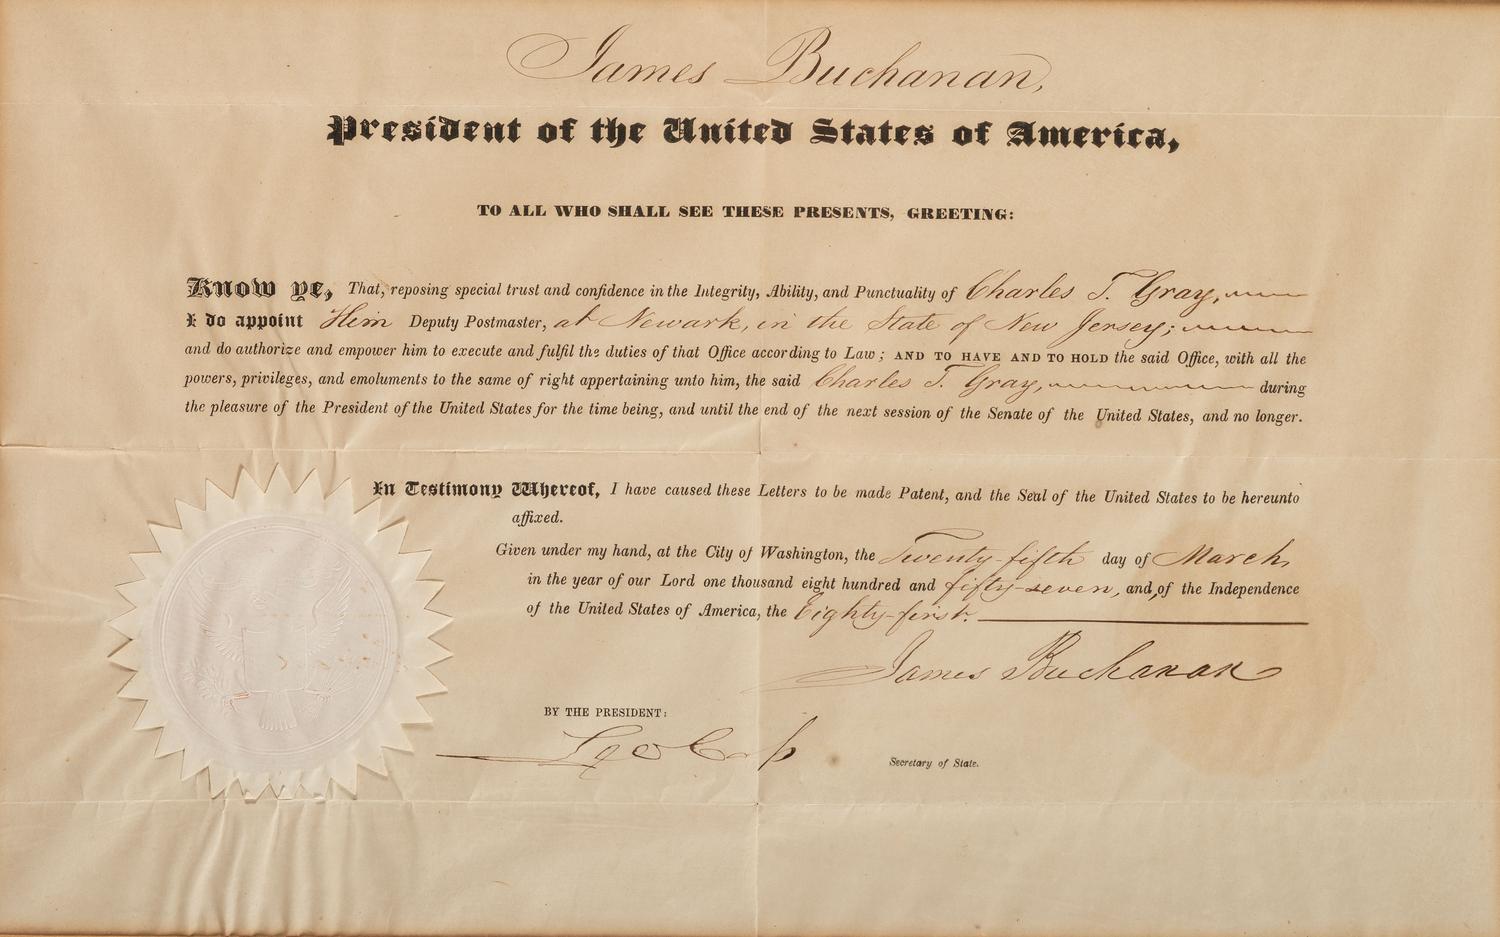 James Buchanan,
President of the United States of America,
TO ALL WHO SHALL SEE THESE PRESENTS, GREETING:
Know ye, That, reposing special trust and confidence in the Integrity, Ability, and Punctuality of Charles T. Gray,
I do appoint Him Deputy Postmaster, at Newark, in the State of New Jersey;
and do authorize and empower him to execute and fulfil the duties of that Office according to Law; AND TO HAVE AND TO HOLD the said Office, with all the
powers, privileges, and emoluments to the same of right appertaining unto him, the said Charles T. Gray, during
the pleasure of the President of the United States for the time being, and until the end of the next session of the Senate of the United States, and no longer.
In Testimony Whereof, I have caused these Letters to be made Patent, and the Seal of the United States to be hereunto
affixed.
Given under my hand, at the City of Washington, the Twenty-fifth day of March,
in the year of our Lord one thousand eight hundred and fifty-seven, and of the Independence
of the United States of America, the Eighty-first.
James Buchanan
BY THE PRESIDENT:
Secretary of State.